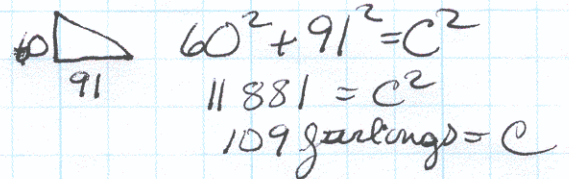 60 60² + 91² = C²
91 11881 = C²
109 furlongs = C